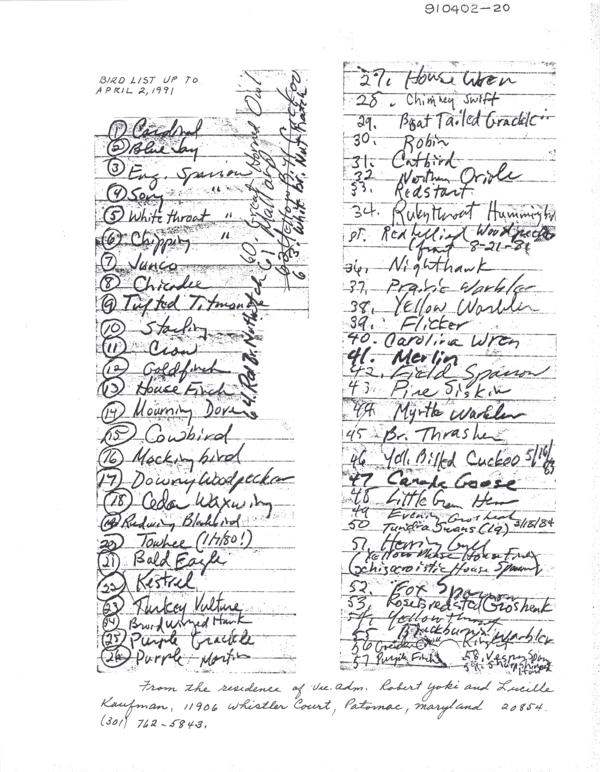 910402-20
BIRD LIST UP TO
APRIL 2, 1991
1 Cardinal
2 Blue Jay
3 Eng. Sparrow
4 Song "
5 White throat "
6 Chipping "
7 Junco
8 Chicadee
9 Tufted Titmouse
10 Starling
11 Crow
12 Goldfinch
13 House Finch
14 Mourning Dove
15 Cowbird
16 Mockingbird
17 Downy Woodpecker
18 Cedar Waxwing
19 Redwing Blackbird
20 Towhee (1/7/80!)
21 Bald Eagle
22 Kestrel
23 Turkey Vulture
24 Broad winged Hawk
25 Purple Grackle
26 Purple Martin
60. Great Horned Owl
61. Mallard
62. Yellow Bill Cuckoo
63. White Br. Nut Hatch
64. Red Br. Nuthatch
27. House Wren
28. Chimney Swift
29. Boat Tailed Grackle
30. Robin
31. Catbird
32 Northern Oriole
33. Redstart
34. Rubythroat Hummingbird
35. Redbellied Woodpecker
(first) 8-21-81
36. Nighthawk
37. Prairie Warbler
38. Yellow Warbler
39. Flicker
40. Carolina Wren
41. Merlin
42. Field Sparrow
43. Pine Siskin
44. Myrtle Warbler
45 Br. Thrasher
46 Yell. Billed Cuckoo 5/16/83
47 Canada Goose
48 Little Green Heron
49 Evening Grosbeak
50 Tundra Swans (29) 3/15/84
51. Herring Gull
(Yellow House Finch)
(schizocroistic House Sparrow)
52. Fox Sparrow
53. Rosebreasted Grosbeak
54. Yellowthroat
55 Blackburnian Warbler
56 Golden Cr. Kinglet
57 Purple Finch
58. Vesper Spar.
59. Sharpshinned Hawk
From the residence of Vic. Adm. Robert Yoki and Lucille
Kaufman, 11906 Whistler Court, Potomac, Maryland 20854.
(301) 762-5843.